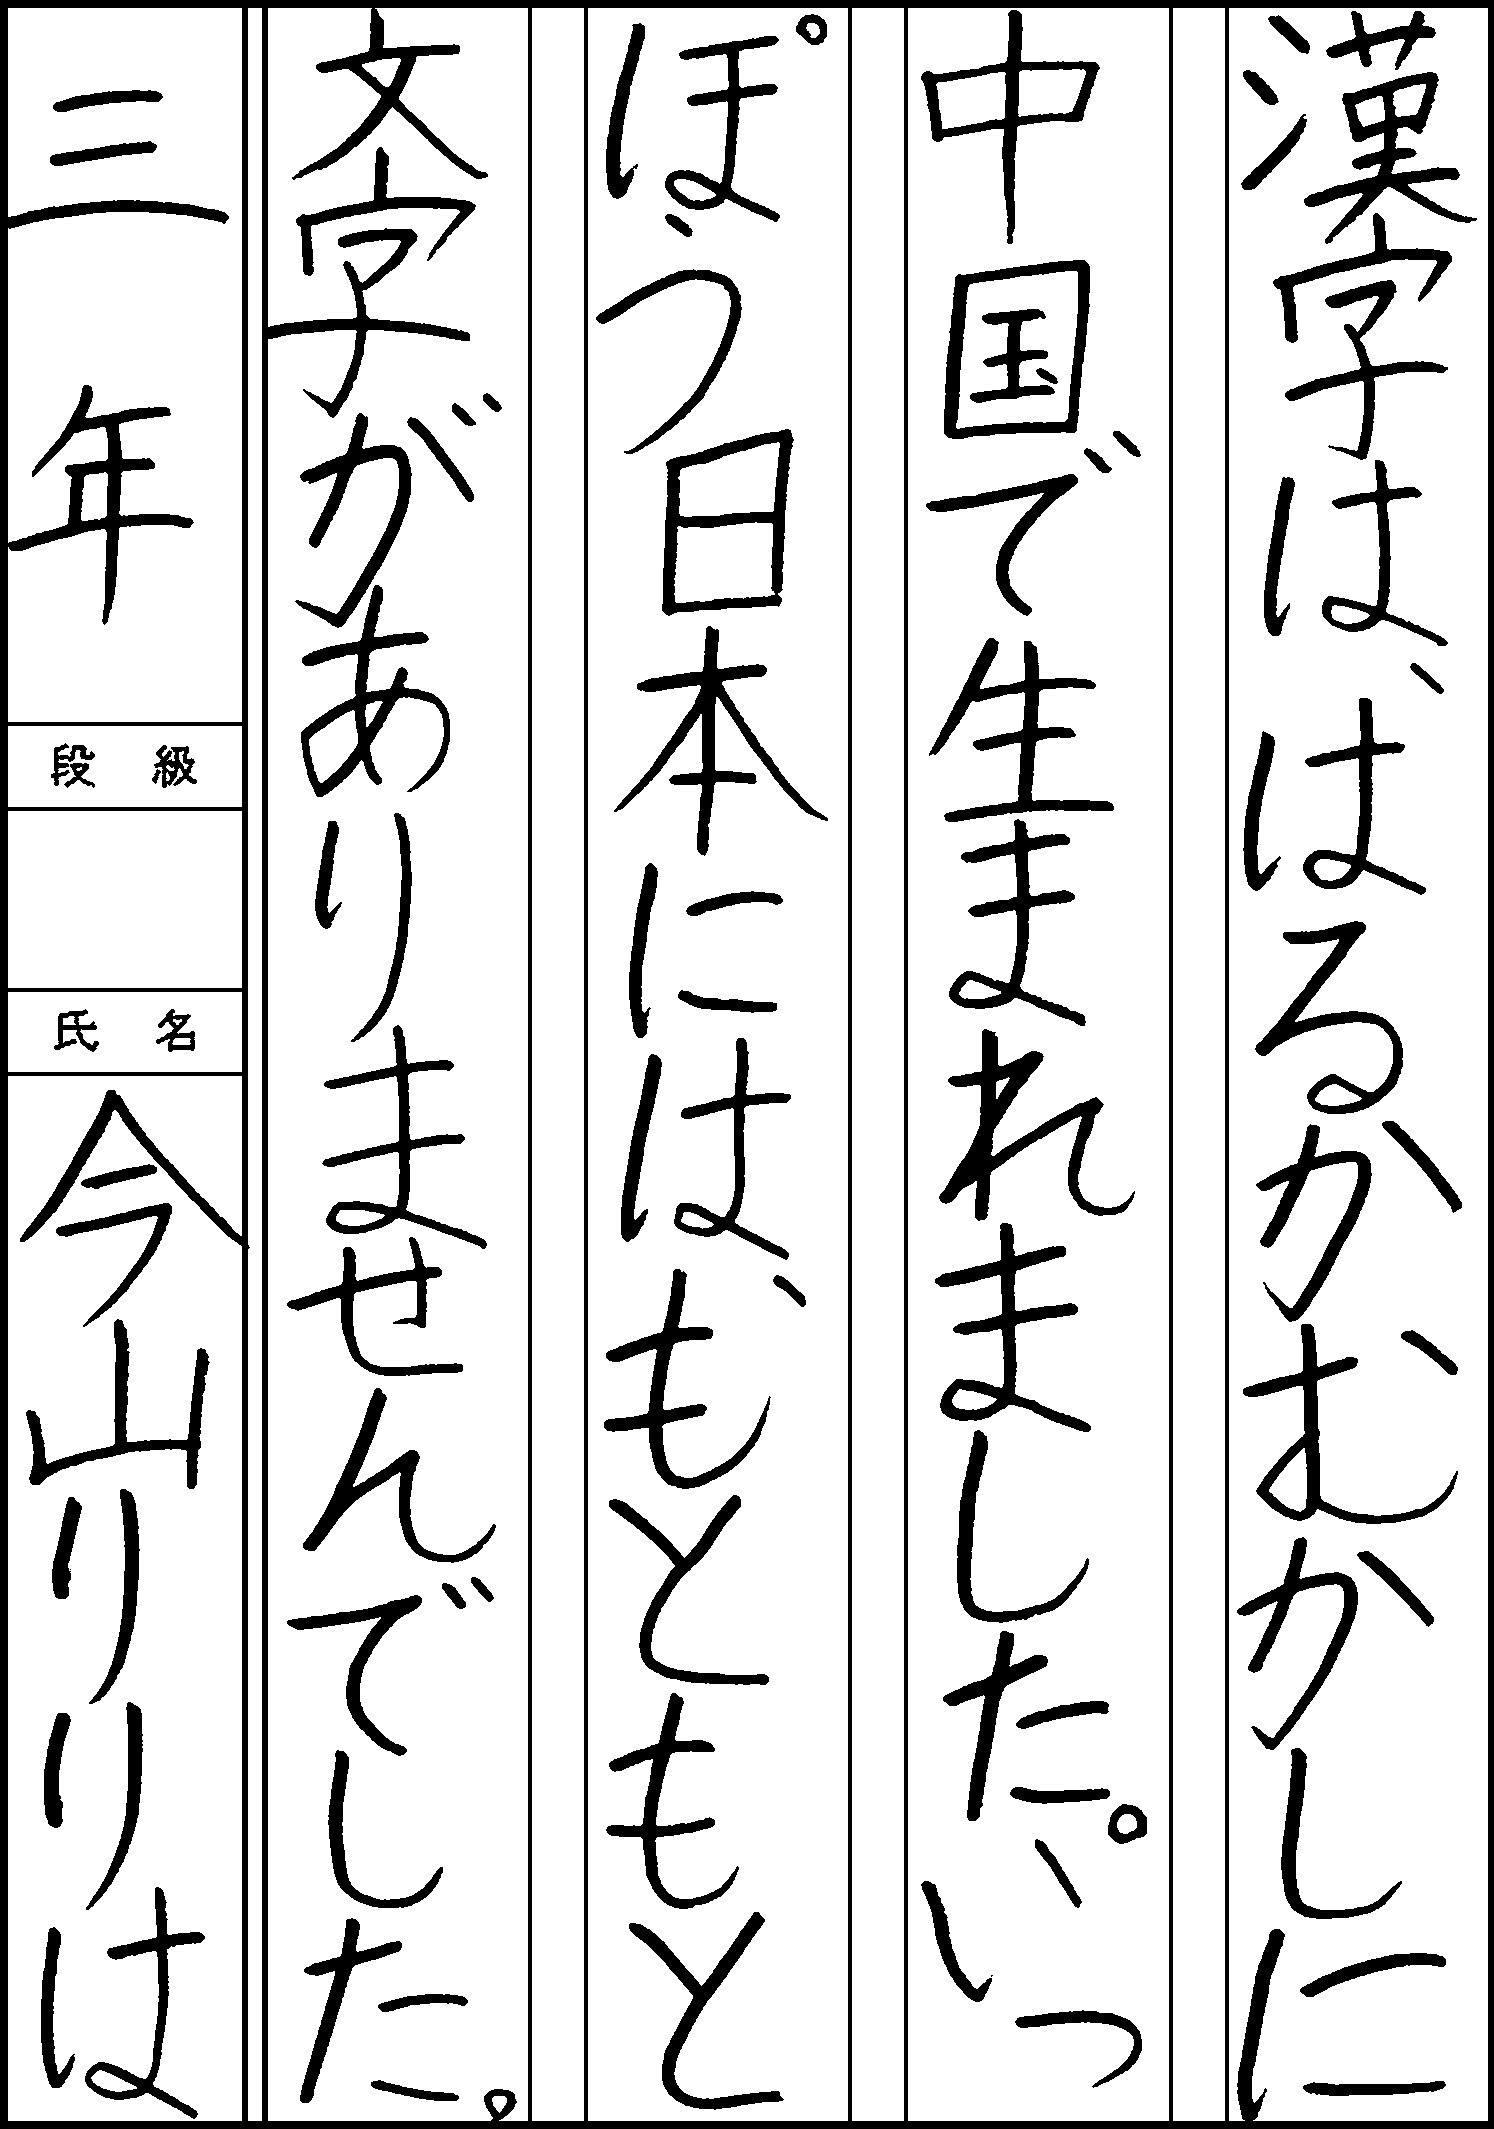 漢字は、はるかむかしに
中国で生まれました。いっ
ぽう日本には、もともと
文字がありませんでした。
三年
段級
氏名
今山りりは